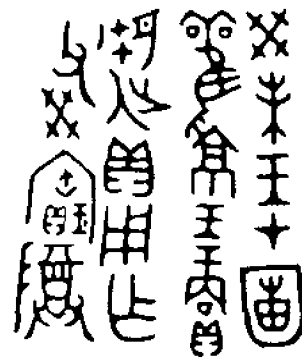 癸未王才圃
雚京王賞
貝用乍
父癸寶尊